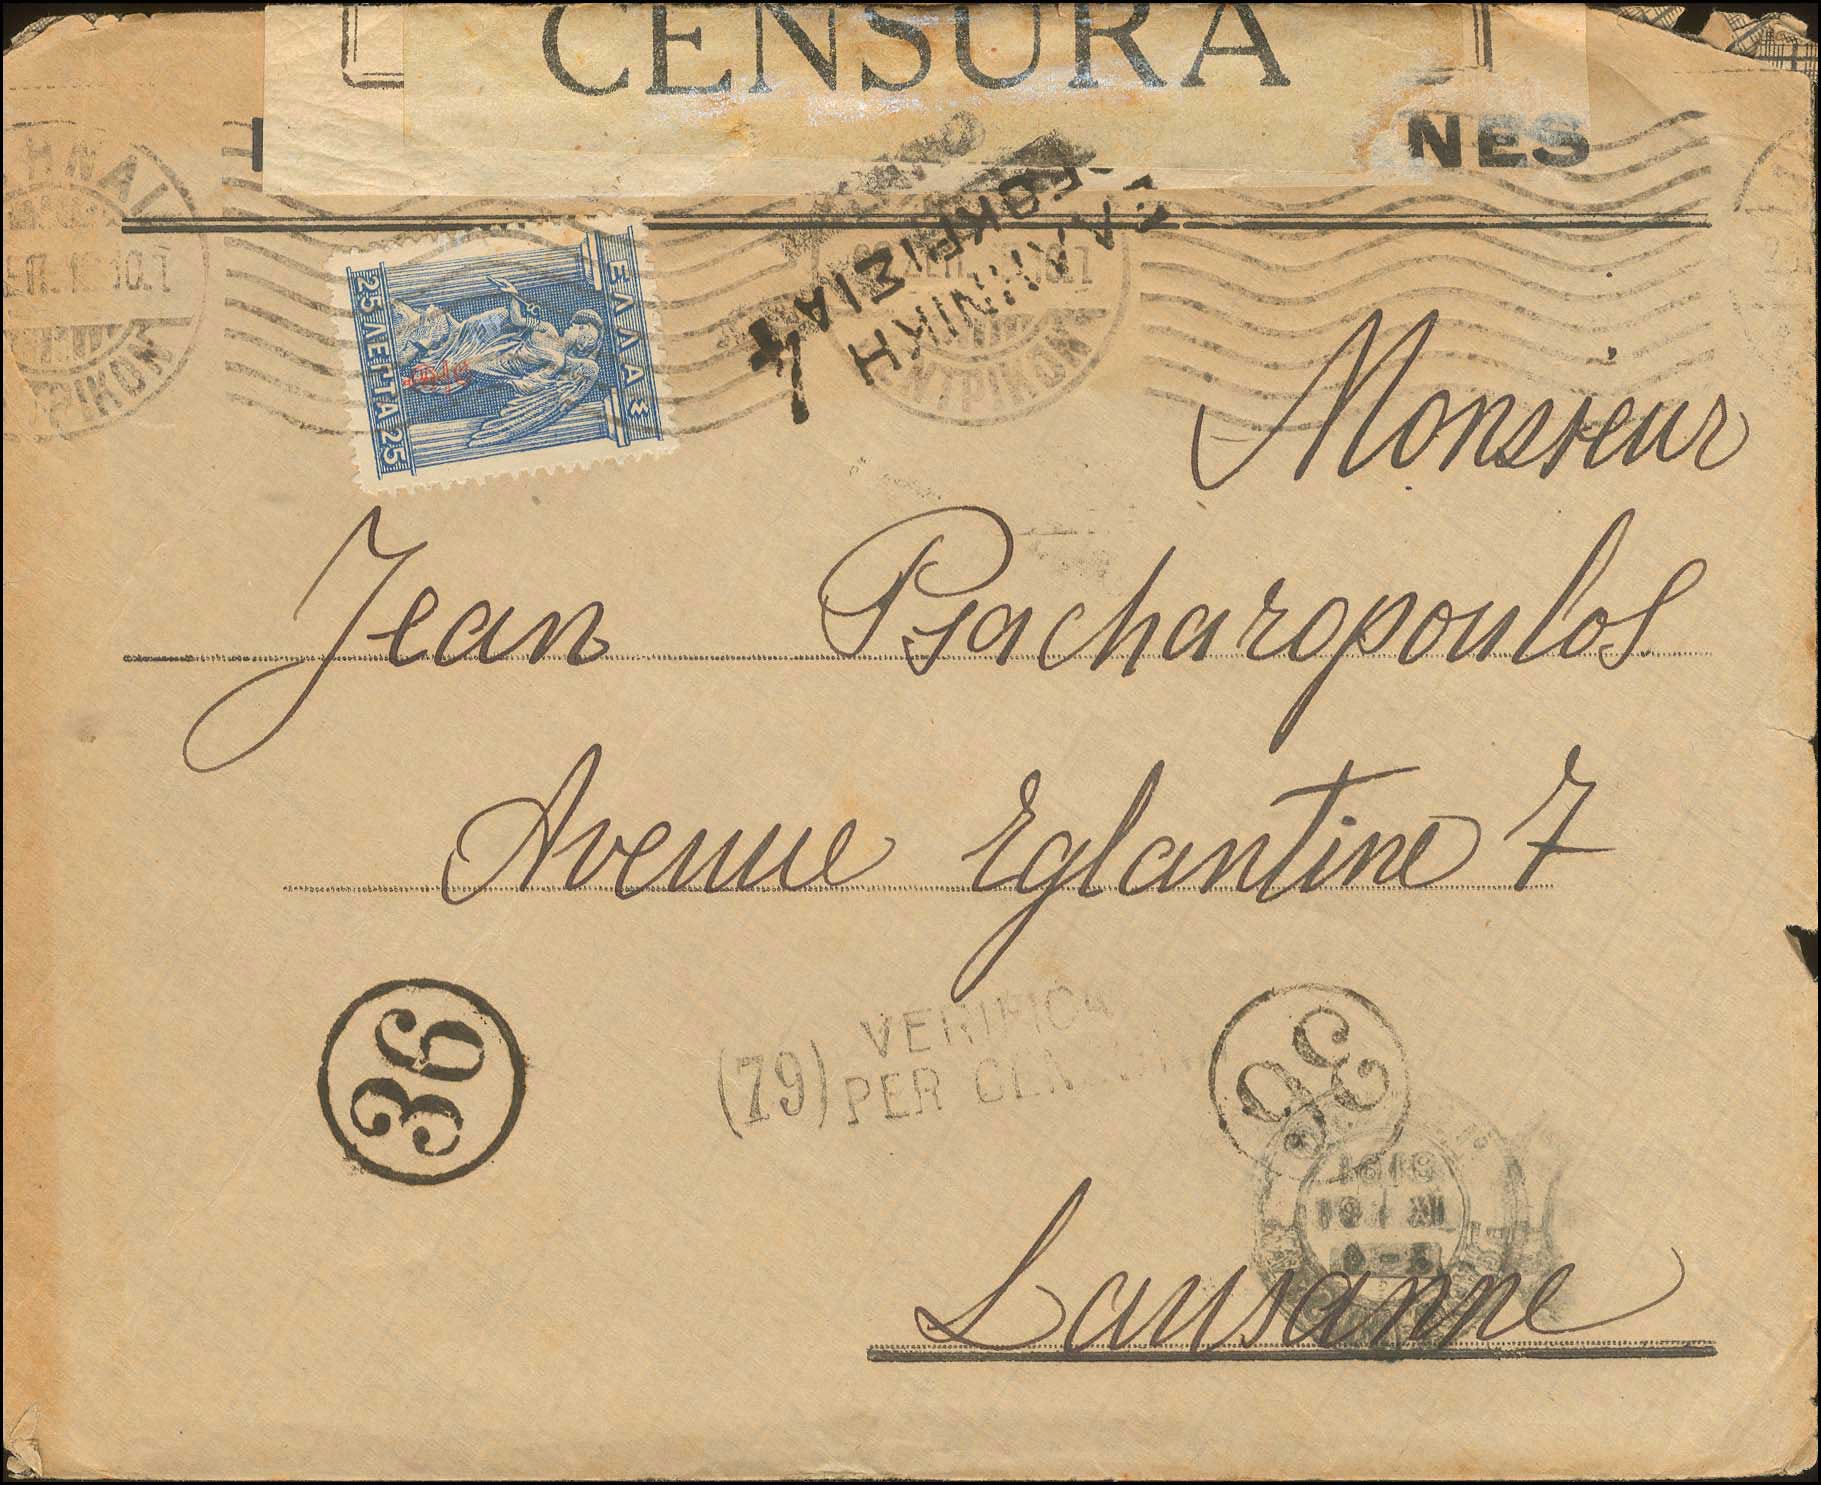 CENSURA
NES
ΕΛΛΑΣ
25 ΛΕΠΤΑ 25
ΕΛΛΗΝΙΚΗ
ΛΟΓΟΚΡΙΣΙΑ
Monsieur
Jean Psacharopoulos
Avenue Eglantine 7
36
(79) VERIFICA
PER CENSURA
36
Lausanne